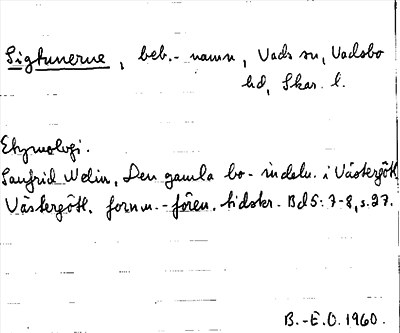 Sigtunerne, beb.-namn, Vads sn, Vadsbo
hd, Skar. l.
Etymologi.
Sanfrid Welin, Den gamla bo-indeln. i Västergötl.
Västergötl. fornm.-fören. tidskr. Bd 5: 7-8, s. 27.
B.-E.O. 1960.